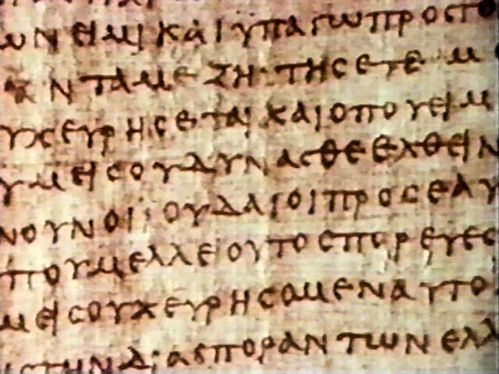 ⲰΝΕΙΜΙΚΑΙΥΠΑΓⲰΠΡΟϹΤΟ
ΑΝΤΑΜΕΖΗΤΗϹΕΤΕΜ
ΥΧΕΥΡΗϹΕΤΑΙΚΑΙΟΠΟΥΕΙΜ
ΥΜΕΙϹΟΥΔΥΝΑϹΘΕΕΛΘΕΙΝ
ΝΟΥΝΟΙΪΟΥΔΑΙΟΙΠΡΟϹΕΑΥ
ΠΟΥΜΕΛΛΕΙΟΥΤΟϹΠΟΡΕΥΕϹ
ΜΕΙϹΟΥΧΕΥΡΗϹΟΜΕΝΑΥΤΟ
ΙϹΤΗΝΔΙΑϹΠΟΡΑΝΤⲰΝΕΛΛ